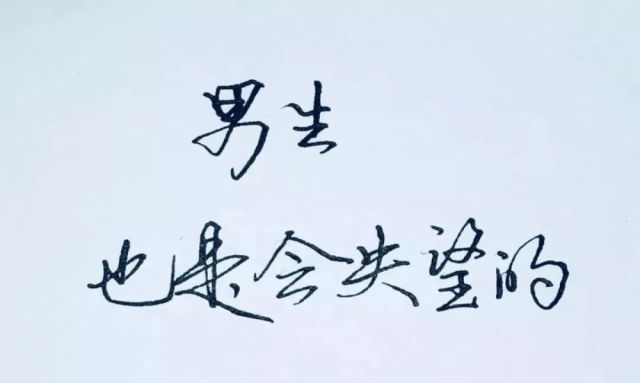 男生
也是会失望的